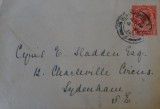 Cyril E. Sladden Esq.
12. Charleville Circus,
Sydenham
S.E.